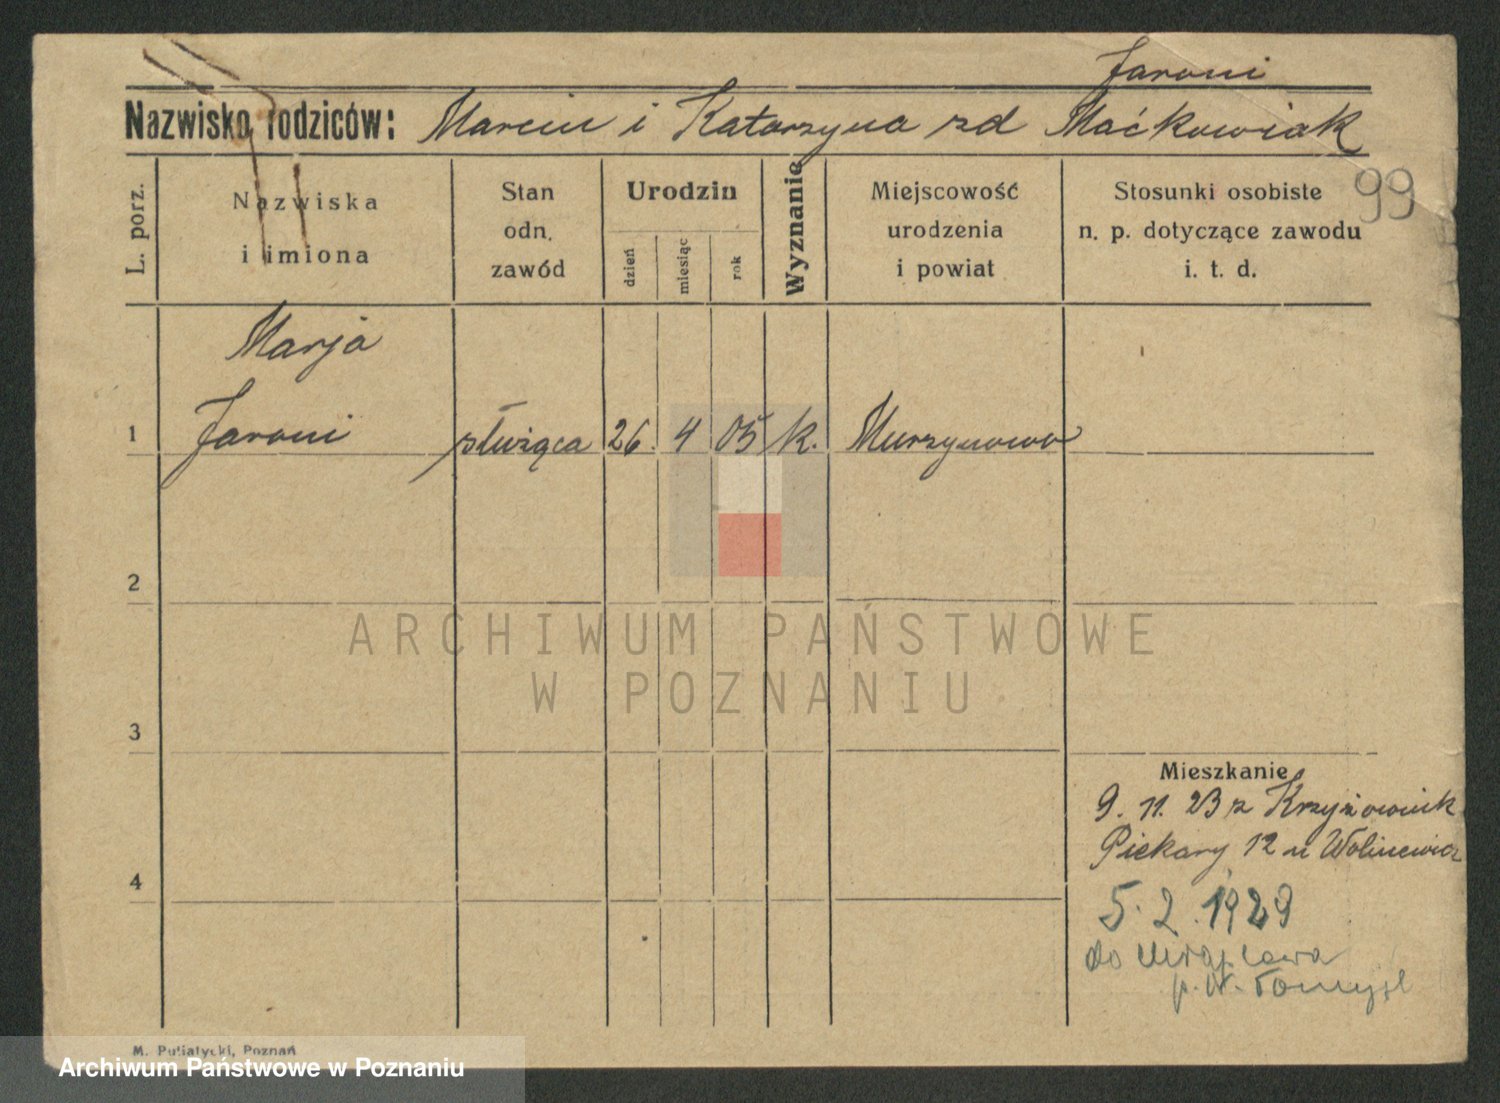 Jaroni
Nazwisko rodziców: Marcin i Katarzyna zd Maćkowiak
99
L. porz.
Nazwiska
i imiona
Stan
odn.
zawód
Urodzin
dzień
miesiąc
rok
Wyznanie
Miejscowość
urodzenia
i powiat
Stosunki osobiste
n. p. dotyczące zawodu
i. t. d.
Marja
1 Jaroni służąca 26. 4 05 k. Murzynowo
2
ARCHIWUM PAŃSTWOWE
W POZNANIU
3
Mieszkanie
9. 11. 23 z Krzyżownik
Piekary 12 u Wolniewicz
4
5. 2. 1929
do
p. N. Tomyśl
M. Putiatycki, Poznań
Archiwum Państwowe w Poznaniu